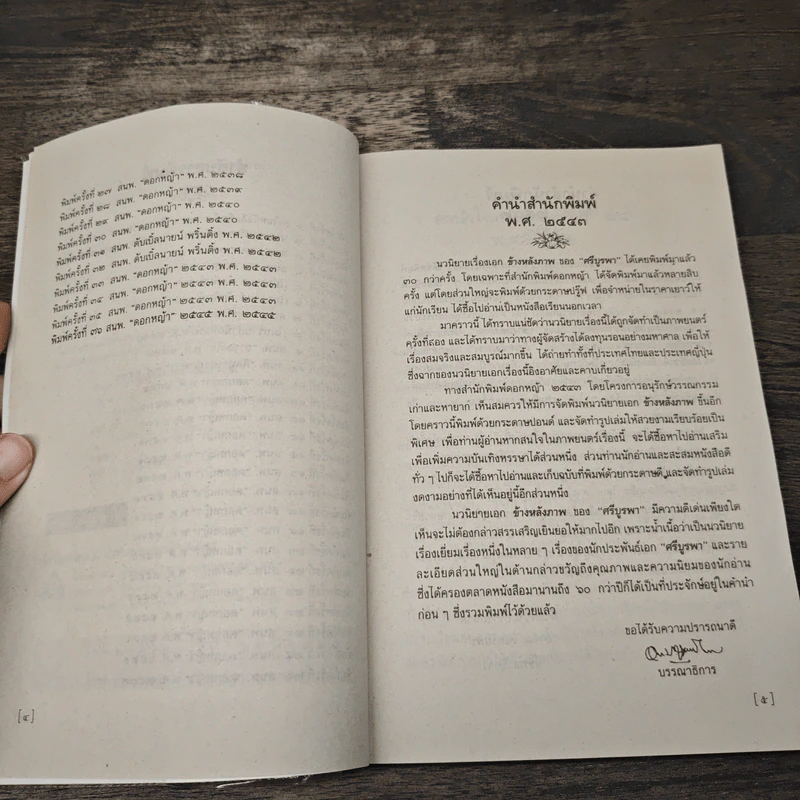 พิมพ์ครั้งที่ ๒๗ สนพ. "ดอกหญ้า" พ.ศ. ๒๕๓๘
พิมพ์ครั้งที่ ๒๘ สนพ. "ดอกหญ้า" พ.ศ. ๒๕๓๙
พิมพ์ครั้งที่ ๒๙ สนพ. "ดอกหญ้า" พ.ศ. ๒๕๔๐
พิมพ์ครั้งที่ ๓๐ สนพ. "ดอกหญ้า" พ.ศ. ๒๕๔๐
พิมพ์ครั้งที่ ๓๑ สนพ. ดับเบิ้ลนายน์ พริ้นติ้ง พ.ศ. ๒๕๔๒
พิมพ์ครั้งที่ ๓๒ สนพ. ดับเบิ้ลนายน์ พริ้นติ้ง พ.ศ. ๒๕๔๒
พิมพ์ครั้งที่ ๓๓ สนพ. "ดอกหญ้า" ๒๕๔๓ พ.ศ. ๒๕๔๓
พิมพ์ครั้งที่ ๓๔ สนพ. "ดอกหญ้า" ๒๕๔๓ พ.ศ. ๒๕๔๓
พิมพ์ครั้งที่ ๓๕ สนพ. "ดอกหญ้า" ๒๕๔๓ พ.ศ. ๒๕๔๓
พิมพ์ครั้งที่ ๓๖ สนพ. "ดอกหญ้า" ๒๕๔๕ พ.ศ. ๒๕๔๕
[๔]
คำนำสำนักพิมพ์
พ.ศ. ๒๕๔๓
นวนิยายเรื่องเอก ข้างหลังภาพ ของ "ศรีบูรพา" ได้เคยพิมพ์มาแล้ว
๓๐ กว่าครั้ง โดยเฉพาะที่สำนักพิมพ์ดอกหญ้า ได้จัดพิมพ์มาแล้วหลายสิบ
ครั้ง แต่โดยส่วนใหญ่จะพิมพ์ด้วยกระดาษปรู๊ฟ เพื่อจำหน่ายในราคาเยาว์ให้
แก่นักเรียน ได้ซื้อไปอ่านเป็นหนังสือเรียนนอกเวลา
มาคราวนี้ ได้ทราบแน่ชัดว่านวนิยายเรื่องนี้ได้ถูกจัดทำเป็นภาพยนตร์
ครั้งที่สอง และได้ทราบมาว่าทางผู้จัดสร้างได้ลงทุนรอนอย่างมหาศาล เพื่อให้
เรื่องสมจริงและสมบูรณ์มากขึ้น ได้ถ่ายทำทั้งที่ประเทศไทยและประเทศญี่ปุ่น
ซึ่งฉากของนวนิยายเอกเรื่องนี้อิงอาศัยและคาบเกี่ยวอยู่
ทางสำนักพิมพ์ดอกหญ้า ๒๕๔๓ โดยโครงการอนุรักษ์วรรณกรรม
เก่าและหายาก เห็นสมควรให้มีการจัดพิมพ์นวนิยายเอก ข้างหลังภาพ ขึ้นอีก
โดยคราวนี้พิมพ์ด้วยกระดาษปอนด์ และจัดทำรูปเล่มให้สวยงามเรียบร้อยเป็น
พิเศษ เพื่อท่านผู้อ่านหากสนใจในภาพยนตร์เรื่องนี้ จะได้ซื้อหาไปอ่านเสริม
เพื่อเพิ่มความบันเทิงหรรษาได้ส่วนหนึ่ง ส่วนท่านนักอ่านและสะสมหนังสือดี
ทั่ว ๆ ไปก็จะได้ซื้อหาไปอ่านและเก็บฉบับที่พิมพ์ด้วยกระดาษดีและจัดทำรูปเล่ม
งดงามอย่างที่ได้เห็นอยู่นี้อีกส่วนหนึ่ง
นวนิยายเอก ข้างหลังภาพ ของ "ศรีบูรพา" มีความดีเด่นเพียงใด
เห็นจะไม่ต้องกล่าวสรรเสริญเยินยอให้มากไปอีก เพราะน้ำเนื้อว่าเป็นนวนิยาย
เรื่องเยี่ยมเรื่องหนึ่งในหลาย ๆ เรื่องของนักประพันธ์เอก "ศรีบูรพา" และราย
ละเอียดส่วนใหญ่ในด้านกล่าวขวัญถึงคุณภาพและความนิยมของนักอ่าน
ซึ่งได้ครองตลาดหนังสือมานานถึง ๖๐ กว่าปีก็ได้เป็นที่ประจักษ์อยู่ในคำนำ
ก่อน ๆ ซึ่งรวมพิมพ์ไว้ด้วยแล้ว
ขอได้รับความปรารถนาดี
บรรณาธิการ
[๕]